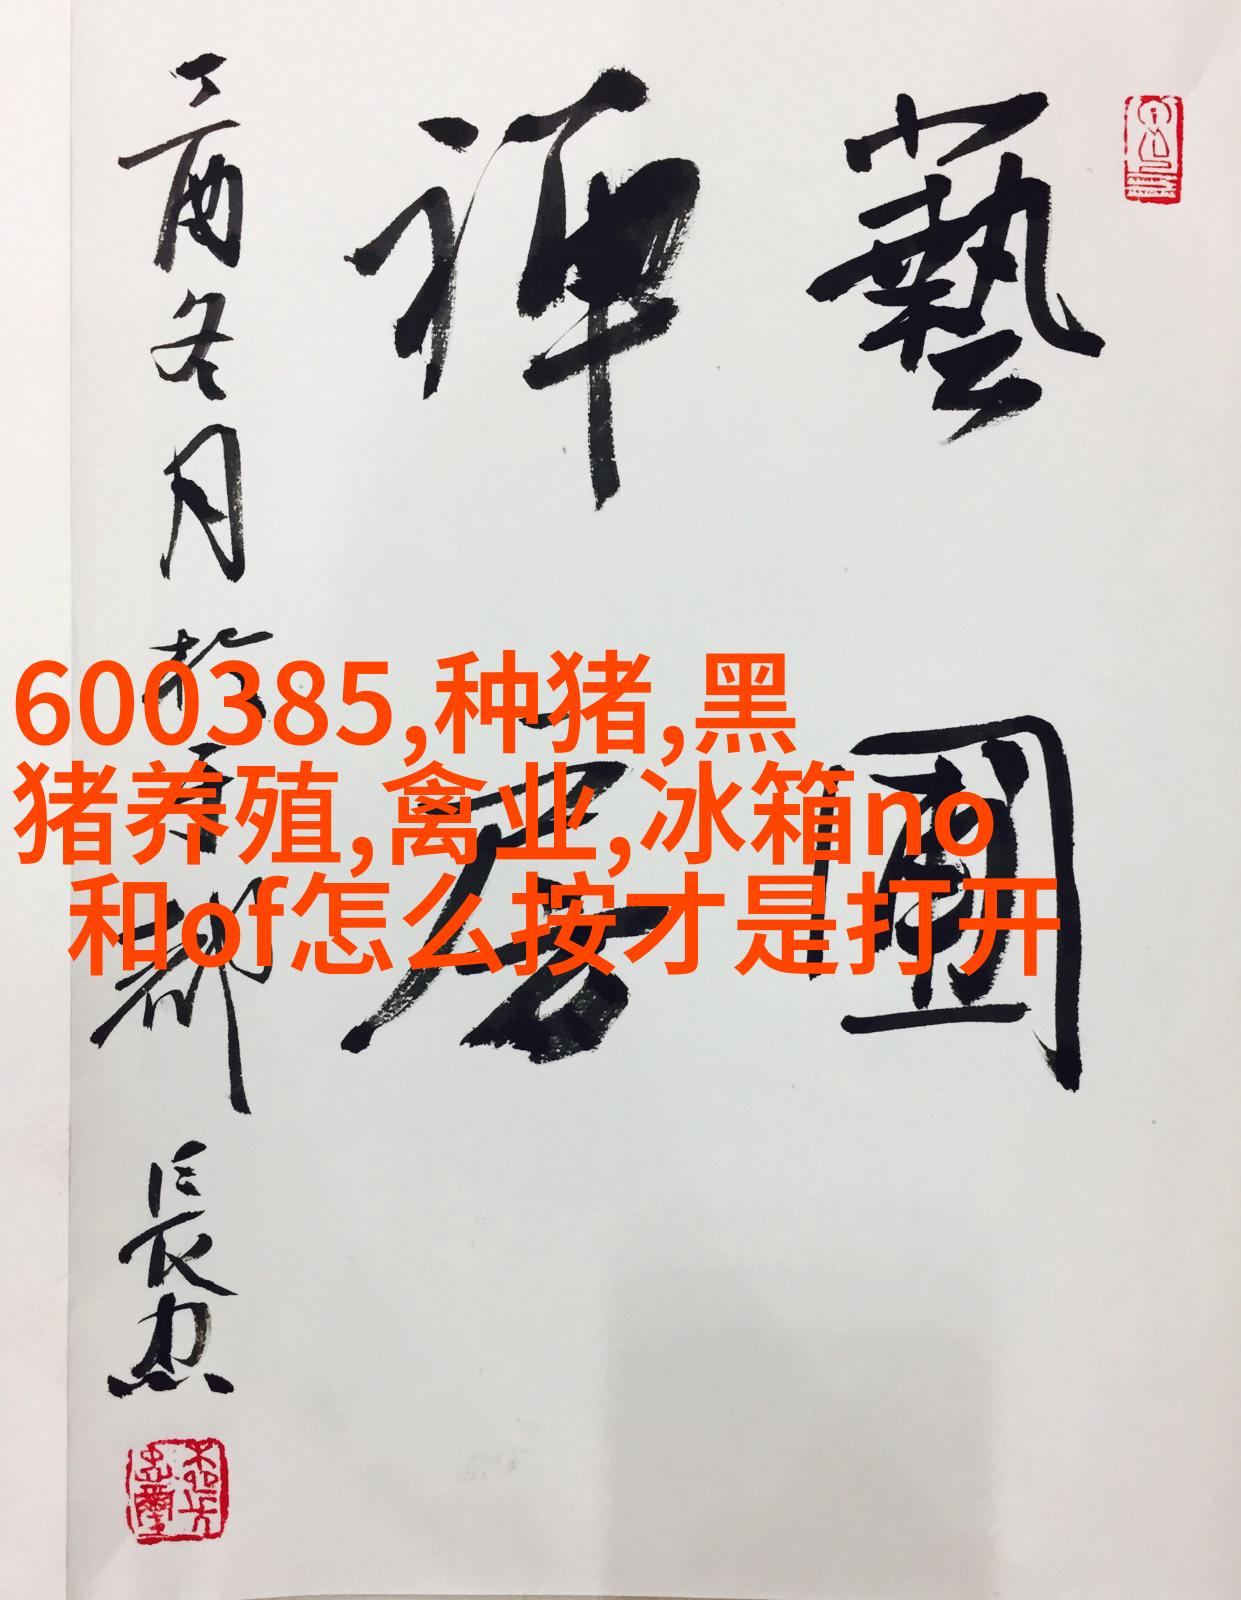 藝
禪
丁酉冬月於 都 長忠
600385,种猪,黑
猪养殖,禽业,冰箱no
和of怎么按才是打开